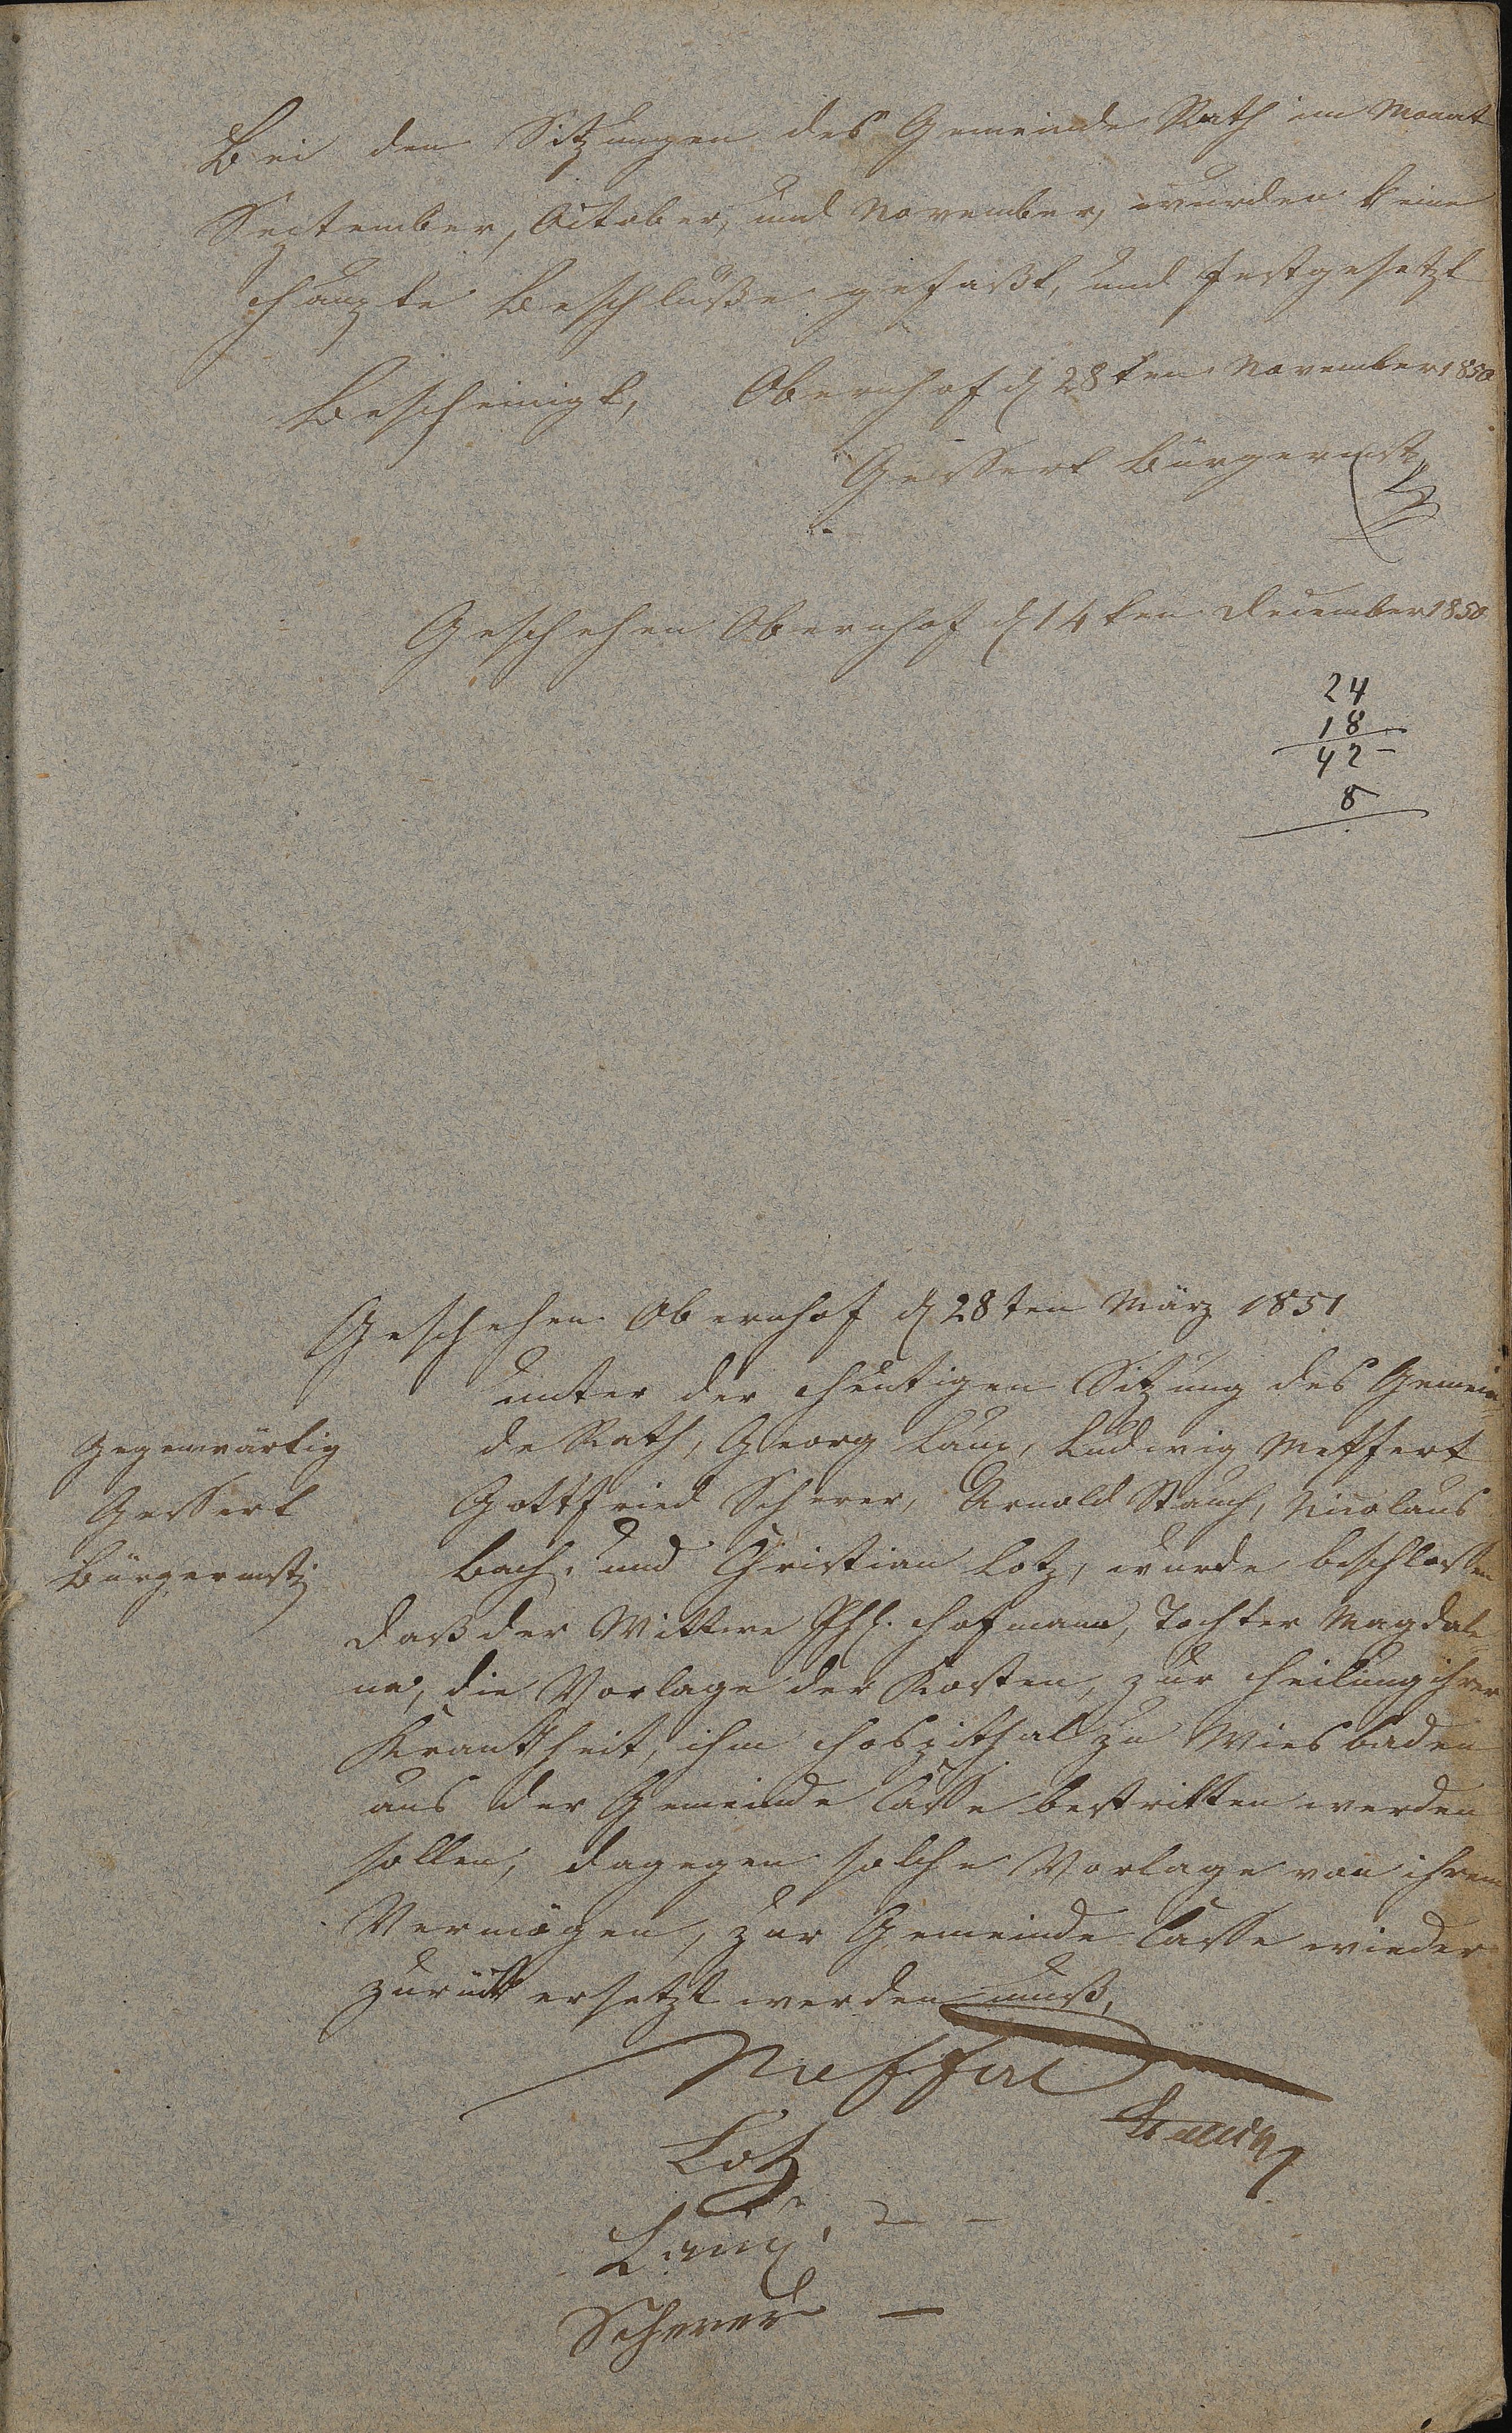 Bei den Sitzungen des Gemeinde Rath im Monat
September, October, und November, wurden keine
haupte Beschlüße gefaßt, und festgesetzt
Bescheinigt, Obernhof d 28ten November 1850
Gessert Bürgermstr
Geschehen Obernhof d 14ten December 1850
24
18
42
8
Geschehen Obernhof d 28ten März 1851
unter der heutigen Sitzung des Gemein=
gegenwärtig
Gessert
Bürgermstr
de Rath, Georg Laux, Ludwig Meffert
Gottfried Scherer, Arnold Stauch, Nicolaus
Bach, und Christian Lotz, wurde beschlossen
daß der Wittwe Phl. Hofmann, Tochter Magdale=
na, die Vorlage der Kosten, zur Heilung ihrer
Krankheit, ihm Hospithal zu Wiesbaden
aus der Gemeinde Casse bestritten werden
sollen, dagegen solche Vorlage von ihrem
Vermögen, zur Gemeinde Casse wieder
zurück ersetzt werden muß,
Meffert
Lotz
Laux
Scherer